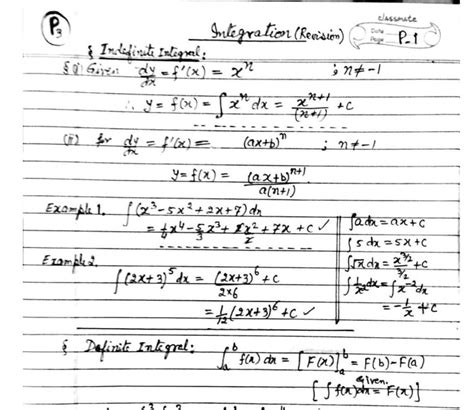 P3
classmate
Date
Page P-1
Integration (Revision)
§ Indefinite Integral:
§ (i) Given dy/dx = f'(x) = x^n ; n≠-1
∴ y = f(x) = ∫x^n dx = x^(n+1)/(n+1) + c
(ii) for dy/dx = f'(x) = (ax+b)^n ; n≠-1
y = f(x) = (ax+b)^(n+1)/a(n+1)
Example 1. ∫(x³-5x²+2x+7)dx
= 1/4 x⁴ - 5/3 x³ + 2x²/2 + 7x + c ✓
Example 2.
∫(2x+3)⁵ dx = (2x+3)⁶/2×6 + c
= 1/12 (2x+3)⁶ + c ✓
∫adx = ax+c
∫5dx = 5x+c
∫√x dx = x^(3/2)/(3/2) + c
∫1/x² dx = ∫x⁻² dx
= -1/x + c
§ Definite Integral: ∫_a^b f(x) dx = [F(x)]_a^b = F(b)-F(a)
given.
[∫f(x)dx = F(x)]